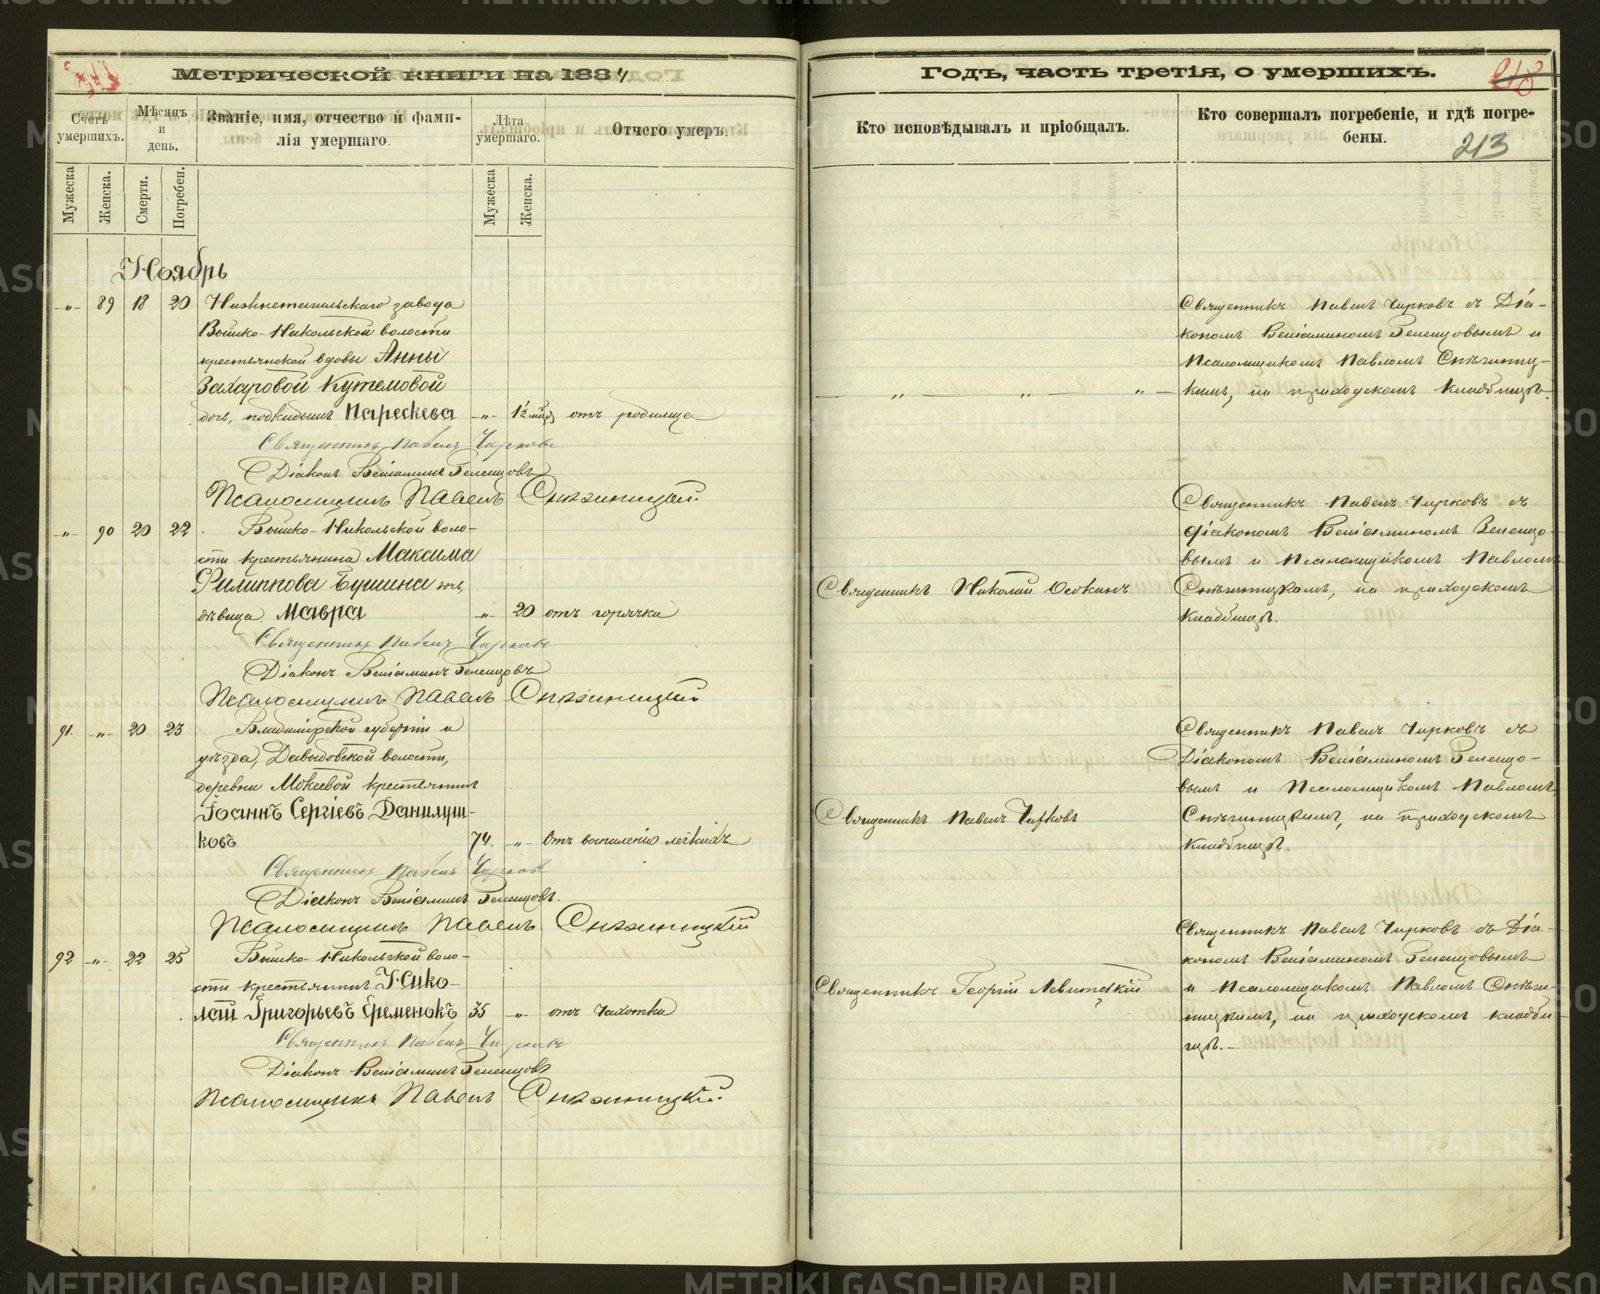 Метрической книги на 1884
Годъ, часть третія, о умершихъ.
213
Счетъ умершихъ.
Мѣсяцъ и день.
Званіе, имя, отчество и фами-
лія умершаго.
Лѣта умершаго.
Отчего умеръ.
Кто исповѣдывалъ и пріобщалъ.
Кто совершалъ погребеніе, и гдѣ погре-
бены.
Мужеска
Женска.
Смерти.
Погребен.
Мужеска
Женска.
Ноябрь
-„- 89 18 20 Нижнетагильскаго завода
Выйско-Никольской волости
крестьянской вдовы Анны
Захаровой Кутемовой
дочь, подкидышъ Параскева -„- 1½ мѣс. отъ родимца
Священникъ Павелъ Чирковъ
Діаконъ Веніаминъ Геленцовъ
Псаломщикъ Павелъ Снѣжницкій
Священникъ Павелъ Чирковъ съ Діа-
кономъ Веніаминомъ Геленцовымъ и
Псаломщикомъ Павломъ Снѣжниц-
„ „ „ кимъ, на приходскомъ кладбищѣ.
-„- 90 20 22 Выйско-Никольской воло-
сти крестьянина Максима
Филиппова Бушина дочь,
дѣвица Мавра -„- 20 отъ горячки
Священникъ Павелъ Чирковъ
Діаконъ Веніаминъ Геленцовъ
Псаломщикъ Павелъ Снѣжницкій
Священникъ Николай Осокинъ
Священникъ Павелъ Чирковъ съ
діакономъ Веніаминомъ Геленцо-
вымъ и Псаломщикомъ Павломъ
Снѣжницкимъ, на приходскомъ
кладбищѣ.
91. -„- 20 23 Владимірской губерніи и
уѣзда, Давыдовской волости,
деревни Мокеевой крестьянинъ
Іоаннъ Сергіевъ Данилуш-
ковъ 74. -„- Отъ воспаленія легкихъ
Священникъ Павелъ Чирковъ
Діаконъ Веніаминъ Геленцовъ.
Псаломщикъ Павелъ Снѣжницкій
Священникъ Павелъ Чирковъ
Священникъ Павелъ Чирковъ съ
Діакономъ Веніаминомъ Геленцо-
вымъ и Псаломщикомъ Павломъ
Снѣжницкимъ, на приходскомъ
кладбищѣ.
92 -„- 22 25 Выйско-Никольской воло-
сти крестьянинъ Нико-
лай Григорьевъ Еременокъ 35 -„- отъ чахотки
Священникъ Павелъ Чирковъ
Діаконъ Веніаминъ Геленцовъ
Псаломщикъ Павелъ Снѣжницкій
Священникъ Георгій Левитскій
Священникъ Павелъ Чирковъ съ Діа-
кономъ Веніаминомъ Геленцовымъ
и Псаломщикомъ Павломъ Снѣжн-
ницкимъ, на приходскомъ кладби-
щѣ.-
METRIKI.GASO-URAL.RU